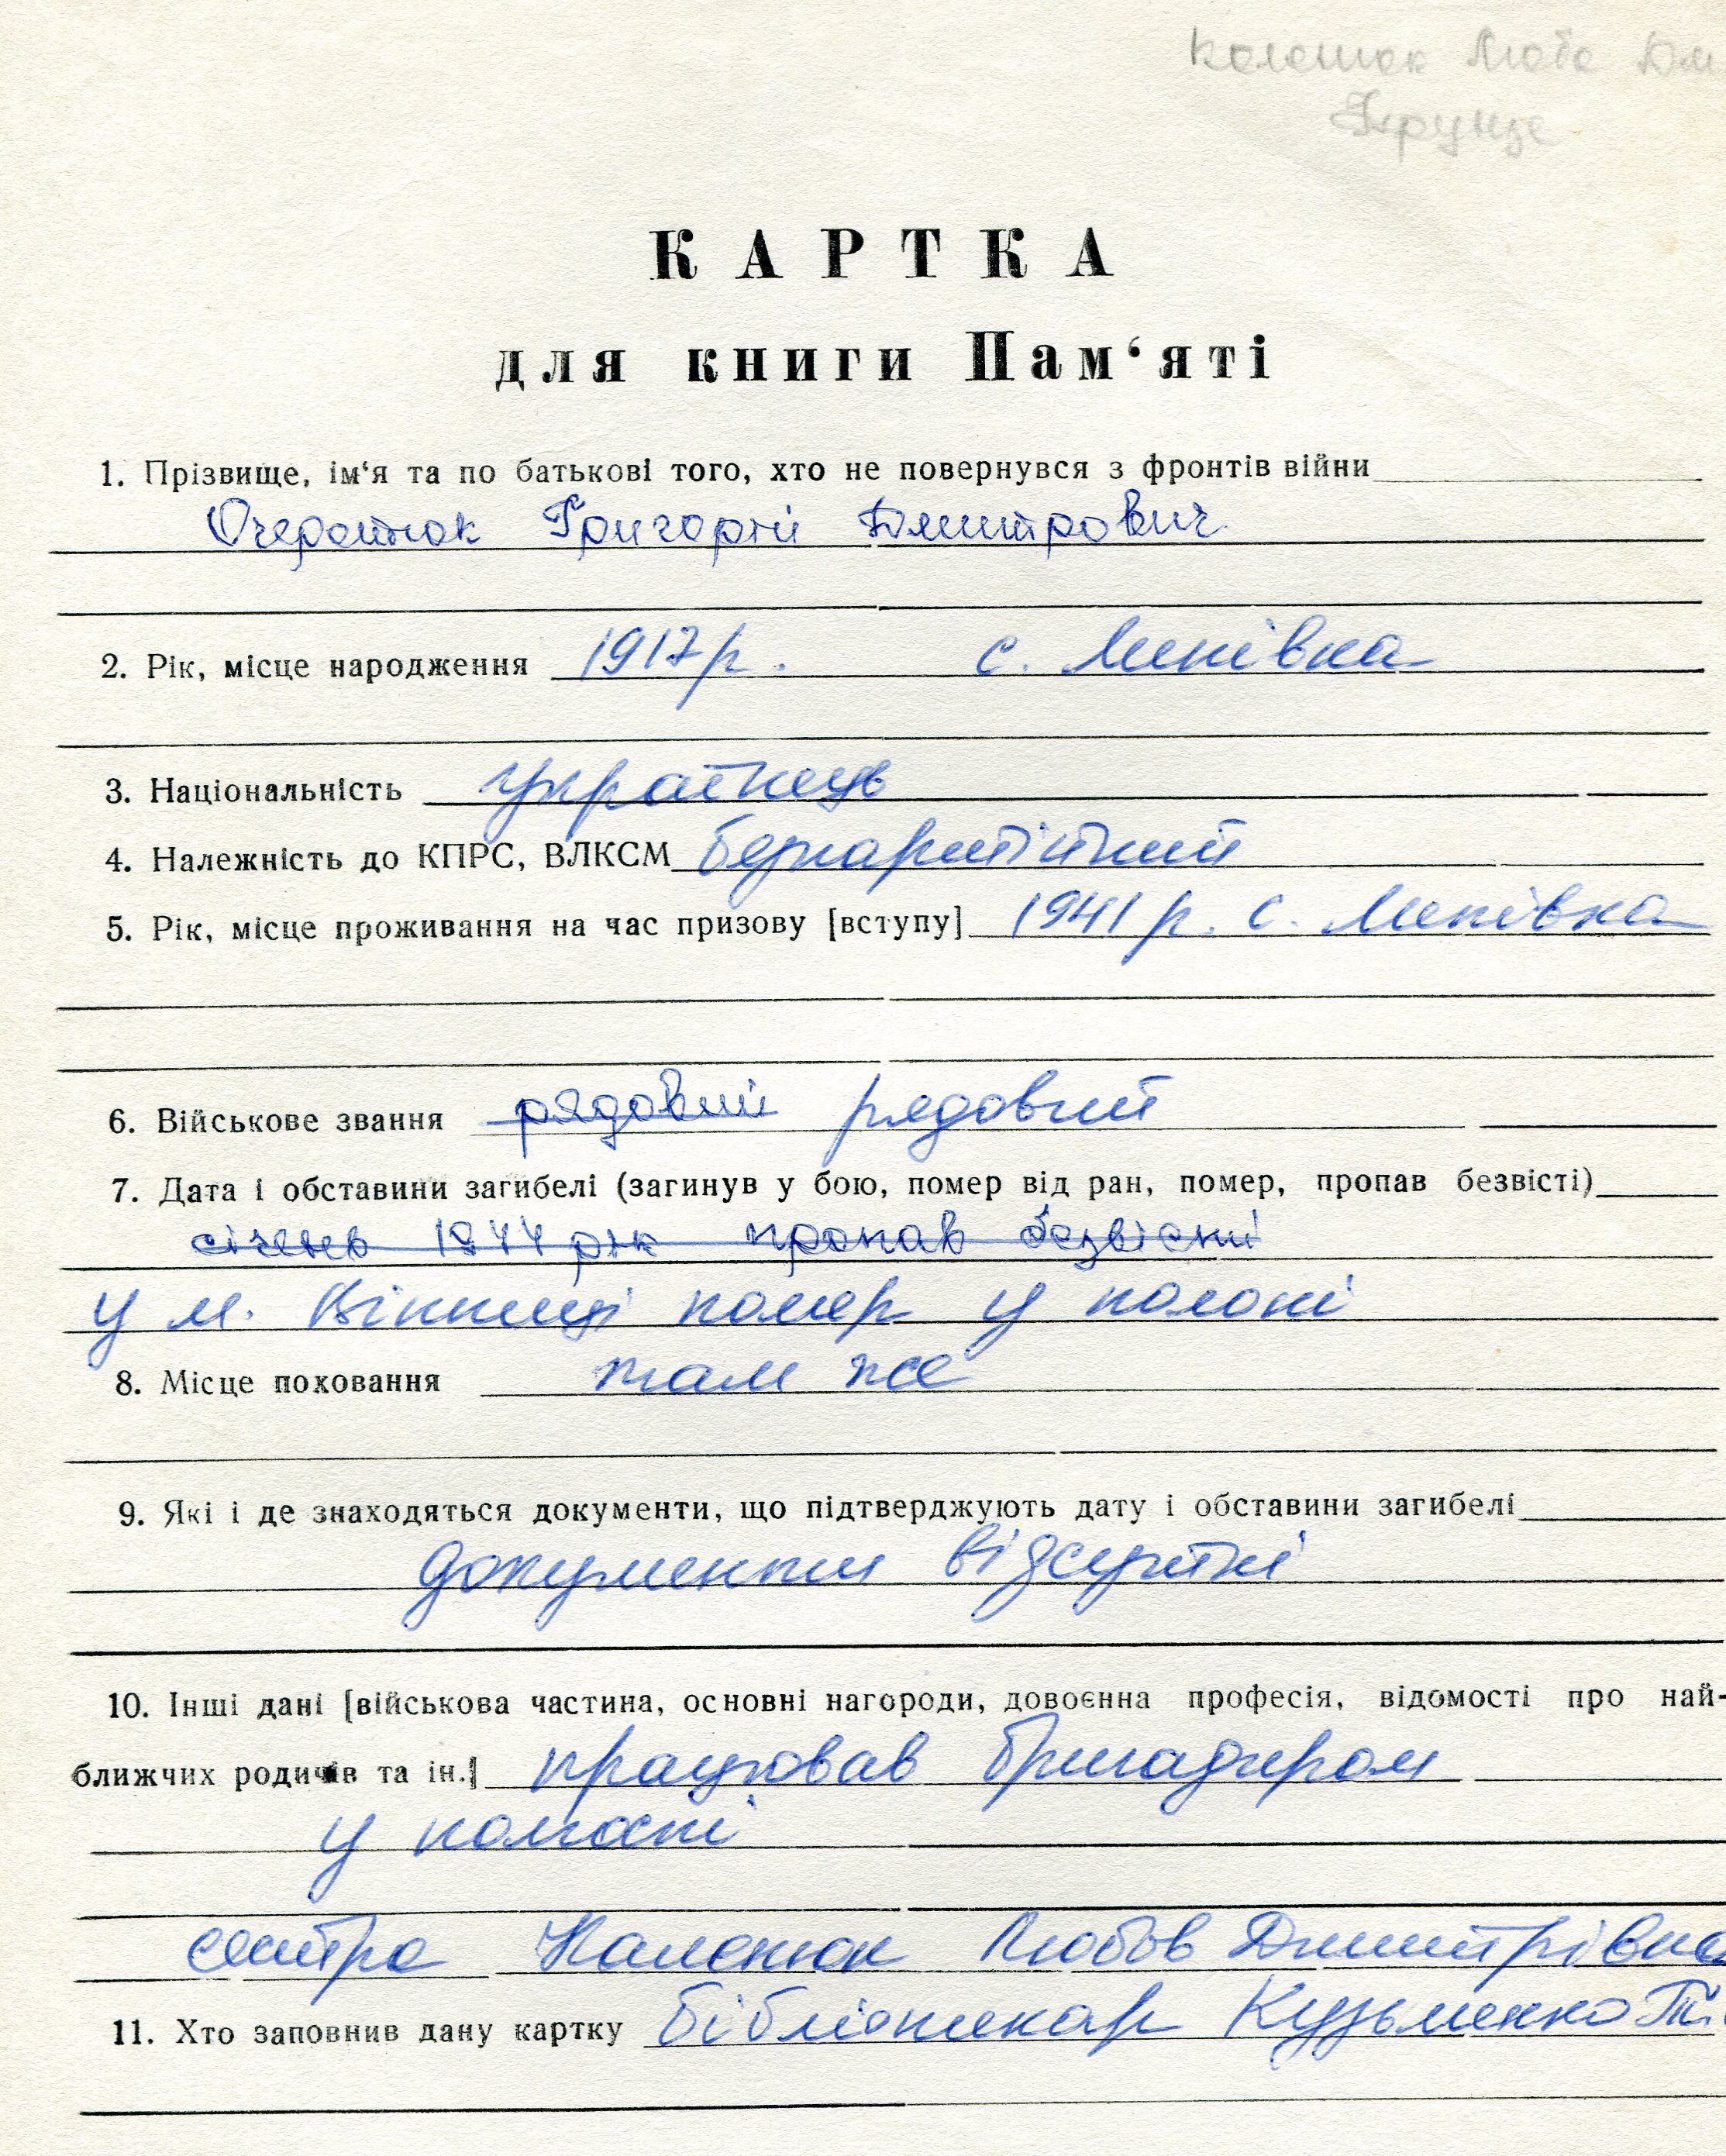 Люба Дм
Фрунзе
КАРТКА
для книги Пам‘яті
1. Прізвище, ім‘я та по батькові того, хто не повернувся з фронтів війни
Очеретнюк Григорій Дмитрович
2. Рік, місце народження 1917 р. с. Липівка
3. Національність українець
4. Належність до КПРС, ВЛКСМ безпартійний
5. Рік, місце проживання на час призову [вступу] 1941 р. с. Липівка
6. Військове звання рядовий рядовий
7. Дата і обставини загибелі (загинув у бою, помер від ран, помер, пропав безвісті)
січень 1944 рік пропав безвісти
у м. Вінниці помер у полоні
8. Місце поховання там же
9. Які і де знаходяться документи, що підтверджують дату і обставини загибелі
документи відсутні
10. Інші дані [військова частина, основні нагороди, довоєнна професія, відомості про най-
ближчих родичів та ін.] працював бригадиром
у колгоспі
сестра Каленюк Любов Дмитрівна
11. Хто заповнив дану картку бібліотекар Кузьменко Т.